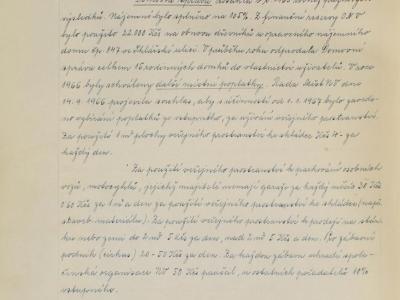 Domovní správa dosáhla v r. 1966 dobrých finančních
výsledků. Nájemné bylo splněno na 105%. Z finanční reservy ONV
bylo použito 22.000 Kčs na obnovu
domu čp. 847 ve Sklářské ulici. V průběhu roku odprodala Domovní
správa celkem 16 rodinných domků do vlastnictví uživatelů. V roce
1966 byly schváleny další místní poplatky. Rada MěstNV dne
14. 9. 1966 projevila souhlas, aby s účinností od 1. 1. 1967 bylo zavede-
no vybírání poplatků ze vstupného, za užívání veřejného prostranství.
Za použití 1 m² plochy veřejného prostranství ke skládce Kčs 4.- za
každý den.
Za použití veřejného prostranství k parkování osobních
vozů, motocyklů, jejichž majitelé nemají garáže za každý měsíc 20 Kčs
0.60 Kčs za 1 m² a den za použití veřejného prostranství ke skládce (např.
staveb. materiálu). Za použití veřejného prostranství k prodeji na stán-
ku nebo zemi do 2 m² 5 Kčs za den, nad 2 m² 5 Kčs a den. Pro zábavní
podnik (cirkus) 20 - 50 Kčs za den. Za každou zábavu uhradí spole-
čenská organisace NV 50 Kčs paušál, u ostatních pořadatelů 10%
vstupného.